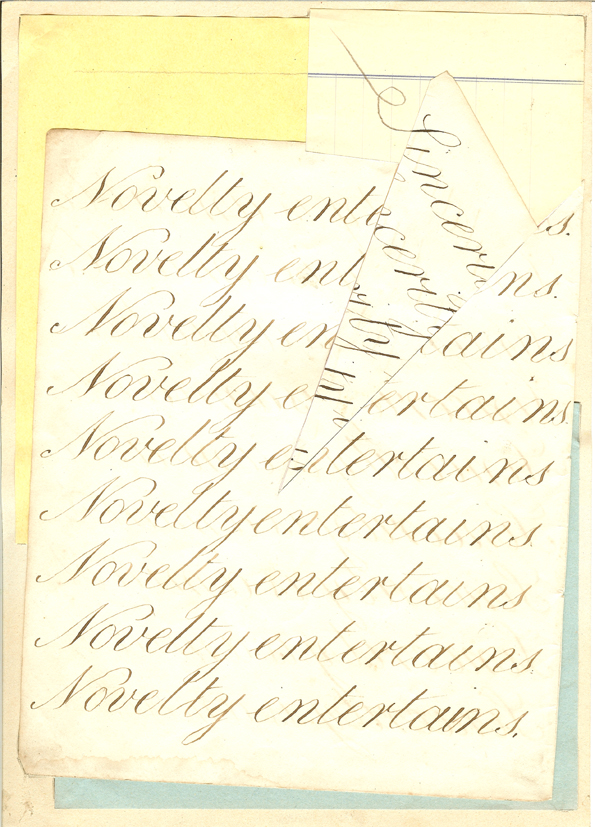 Novelty ente s.
Novelty ent ns.
Novelty en tains
Novelty e ertains.
Novelty entertains
Novelty entertains.
Novelty entertains
Novelty entertains.
Novelty entertains.
Sinceri
cerity